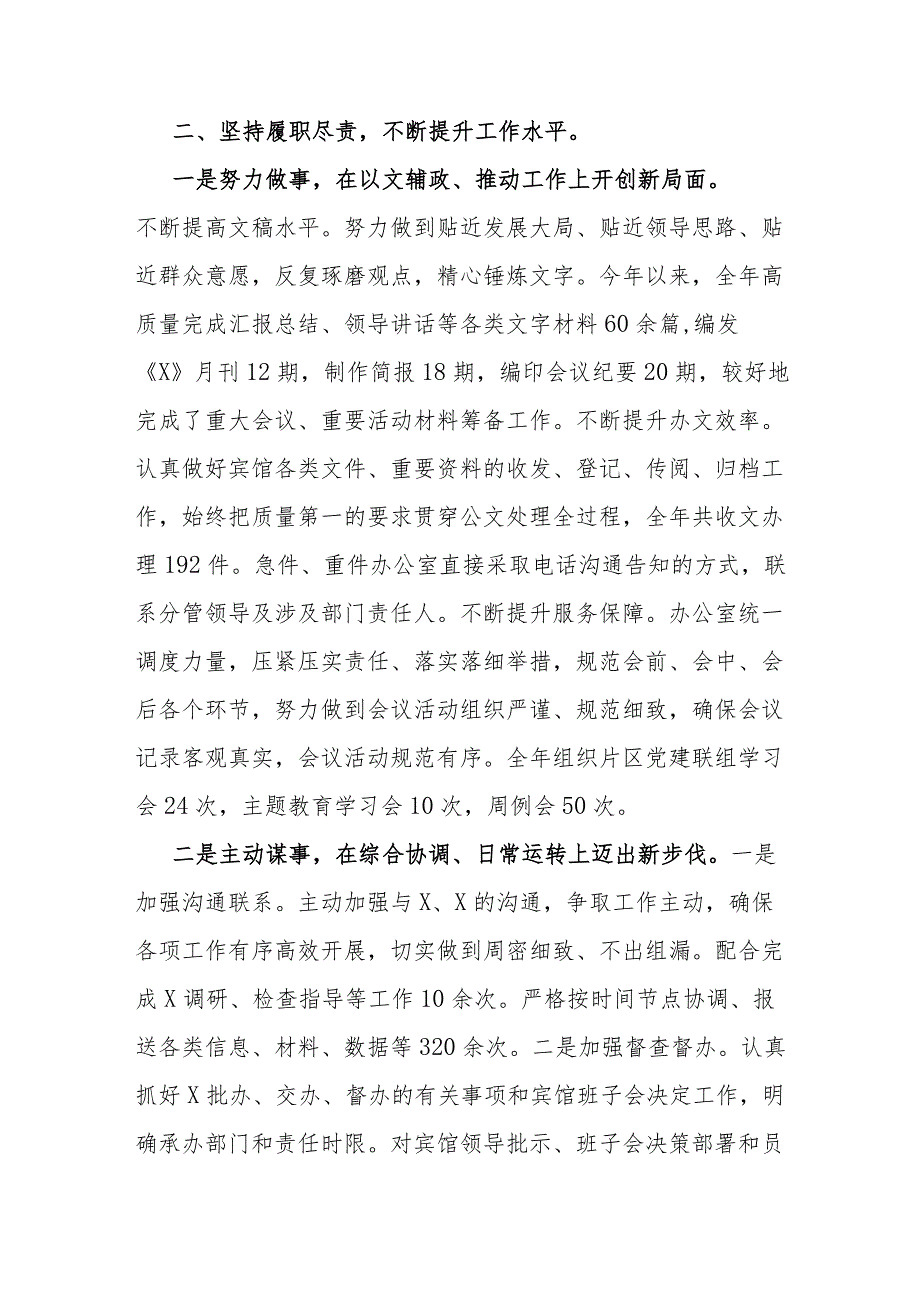 二、坚持履职尽责，不断提升工作水平。
一是努力做事，在以文辅政、推动工作上开创新局面。
不断提高文稿水平。努力做到贴近发展大局、贴近领导思路、贴
近群众意愿，反复琢磨观点，精心锤炼文字。今年以来，全年高
质量完成汇报总结、领导讲话等各类文字材料60余篇,编发
《X》月刊12期，制作简报18期，编印会议纪要20期，较好地
完成了重大会议、重要活动材料筹备工作。不断提升办文效率。
认真做好宾馆各类文件、重要资料的收发、登记、传阅、归档工
作，始终把质量第一的要求贯穿公文处理全过程，全年共收文办
理192件。急件、重件办公室直接采取电话沟通告知的方式，联
系分管领导及涉及部门责任人。不断提升服务保障。办公室统一
调度力量，压紧压实责任、落实落细举措，规范会前、会中、会
后各个环节，努力做到会议活动组织严谨、规范细致，确保会议
记录客观真实，会议活动规范有序。全年组织片区党建联组学习
会24次，主题教育学习会10次，周例会50次。
二是主动谋事，在综合协调、日常运转上迈出新步伐。一是
加强沟通联系。主动加强与X、X的沟通，争取工作主动，确保
各项工作有序高效开展，切实做到周密细致、不出组漏。配合完
成X调研、检查指导等工作10余次。严格按时间节点协调、报
送各类信息、材料、数据等320余次。二是加强督查督办。认真
抓好X批办、交办、督办的有关事项和宾馆班子会决定工作，明
确承办部门和责任时限。对宾馆领导批示、班子会决策部署和员